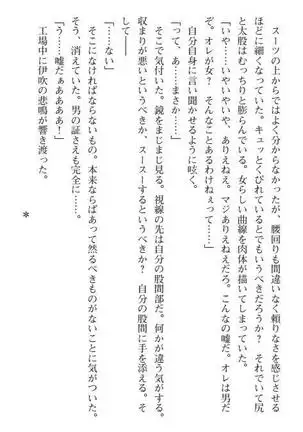 スーツの上からではよく分からなかったが、腰回りも間違いなく頼りなさを感じさせる
ほどに細くなっていた。キュッとくびれているとでもいうべきだろうか？　それでいて尻
と太股はむっちりと膨らんでいる。女らしい曲線を肉体が描いてしまっていた。
「いや……いやいやいや、ありえねえ。マジありえねえだろ。こんなの嘘だ。オレは男だ
ぞ。オレが女？　そんなことあるわけねぇって……」
自分自身に言い聞かせるように呟く。
「って、あ……まさか……」
そこで気付いた。鏡をまじまじ見る。視線の先は自分の股間部だ。何かが違う気がする。
収まりが悪いというべきか、スースーするというべきか？　自分の股間に手を添える。そ
して――
「……ない」
そこになければならないもの。本来ならばあって然るべきものがないことに気がついた。
そう、消えていた。男の証さえも完全に……。
「う……嘘だぁぁぁぁ！」
工場中に伊吹の悲鳴が響き渡った。
＊